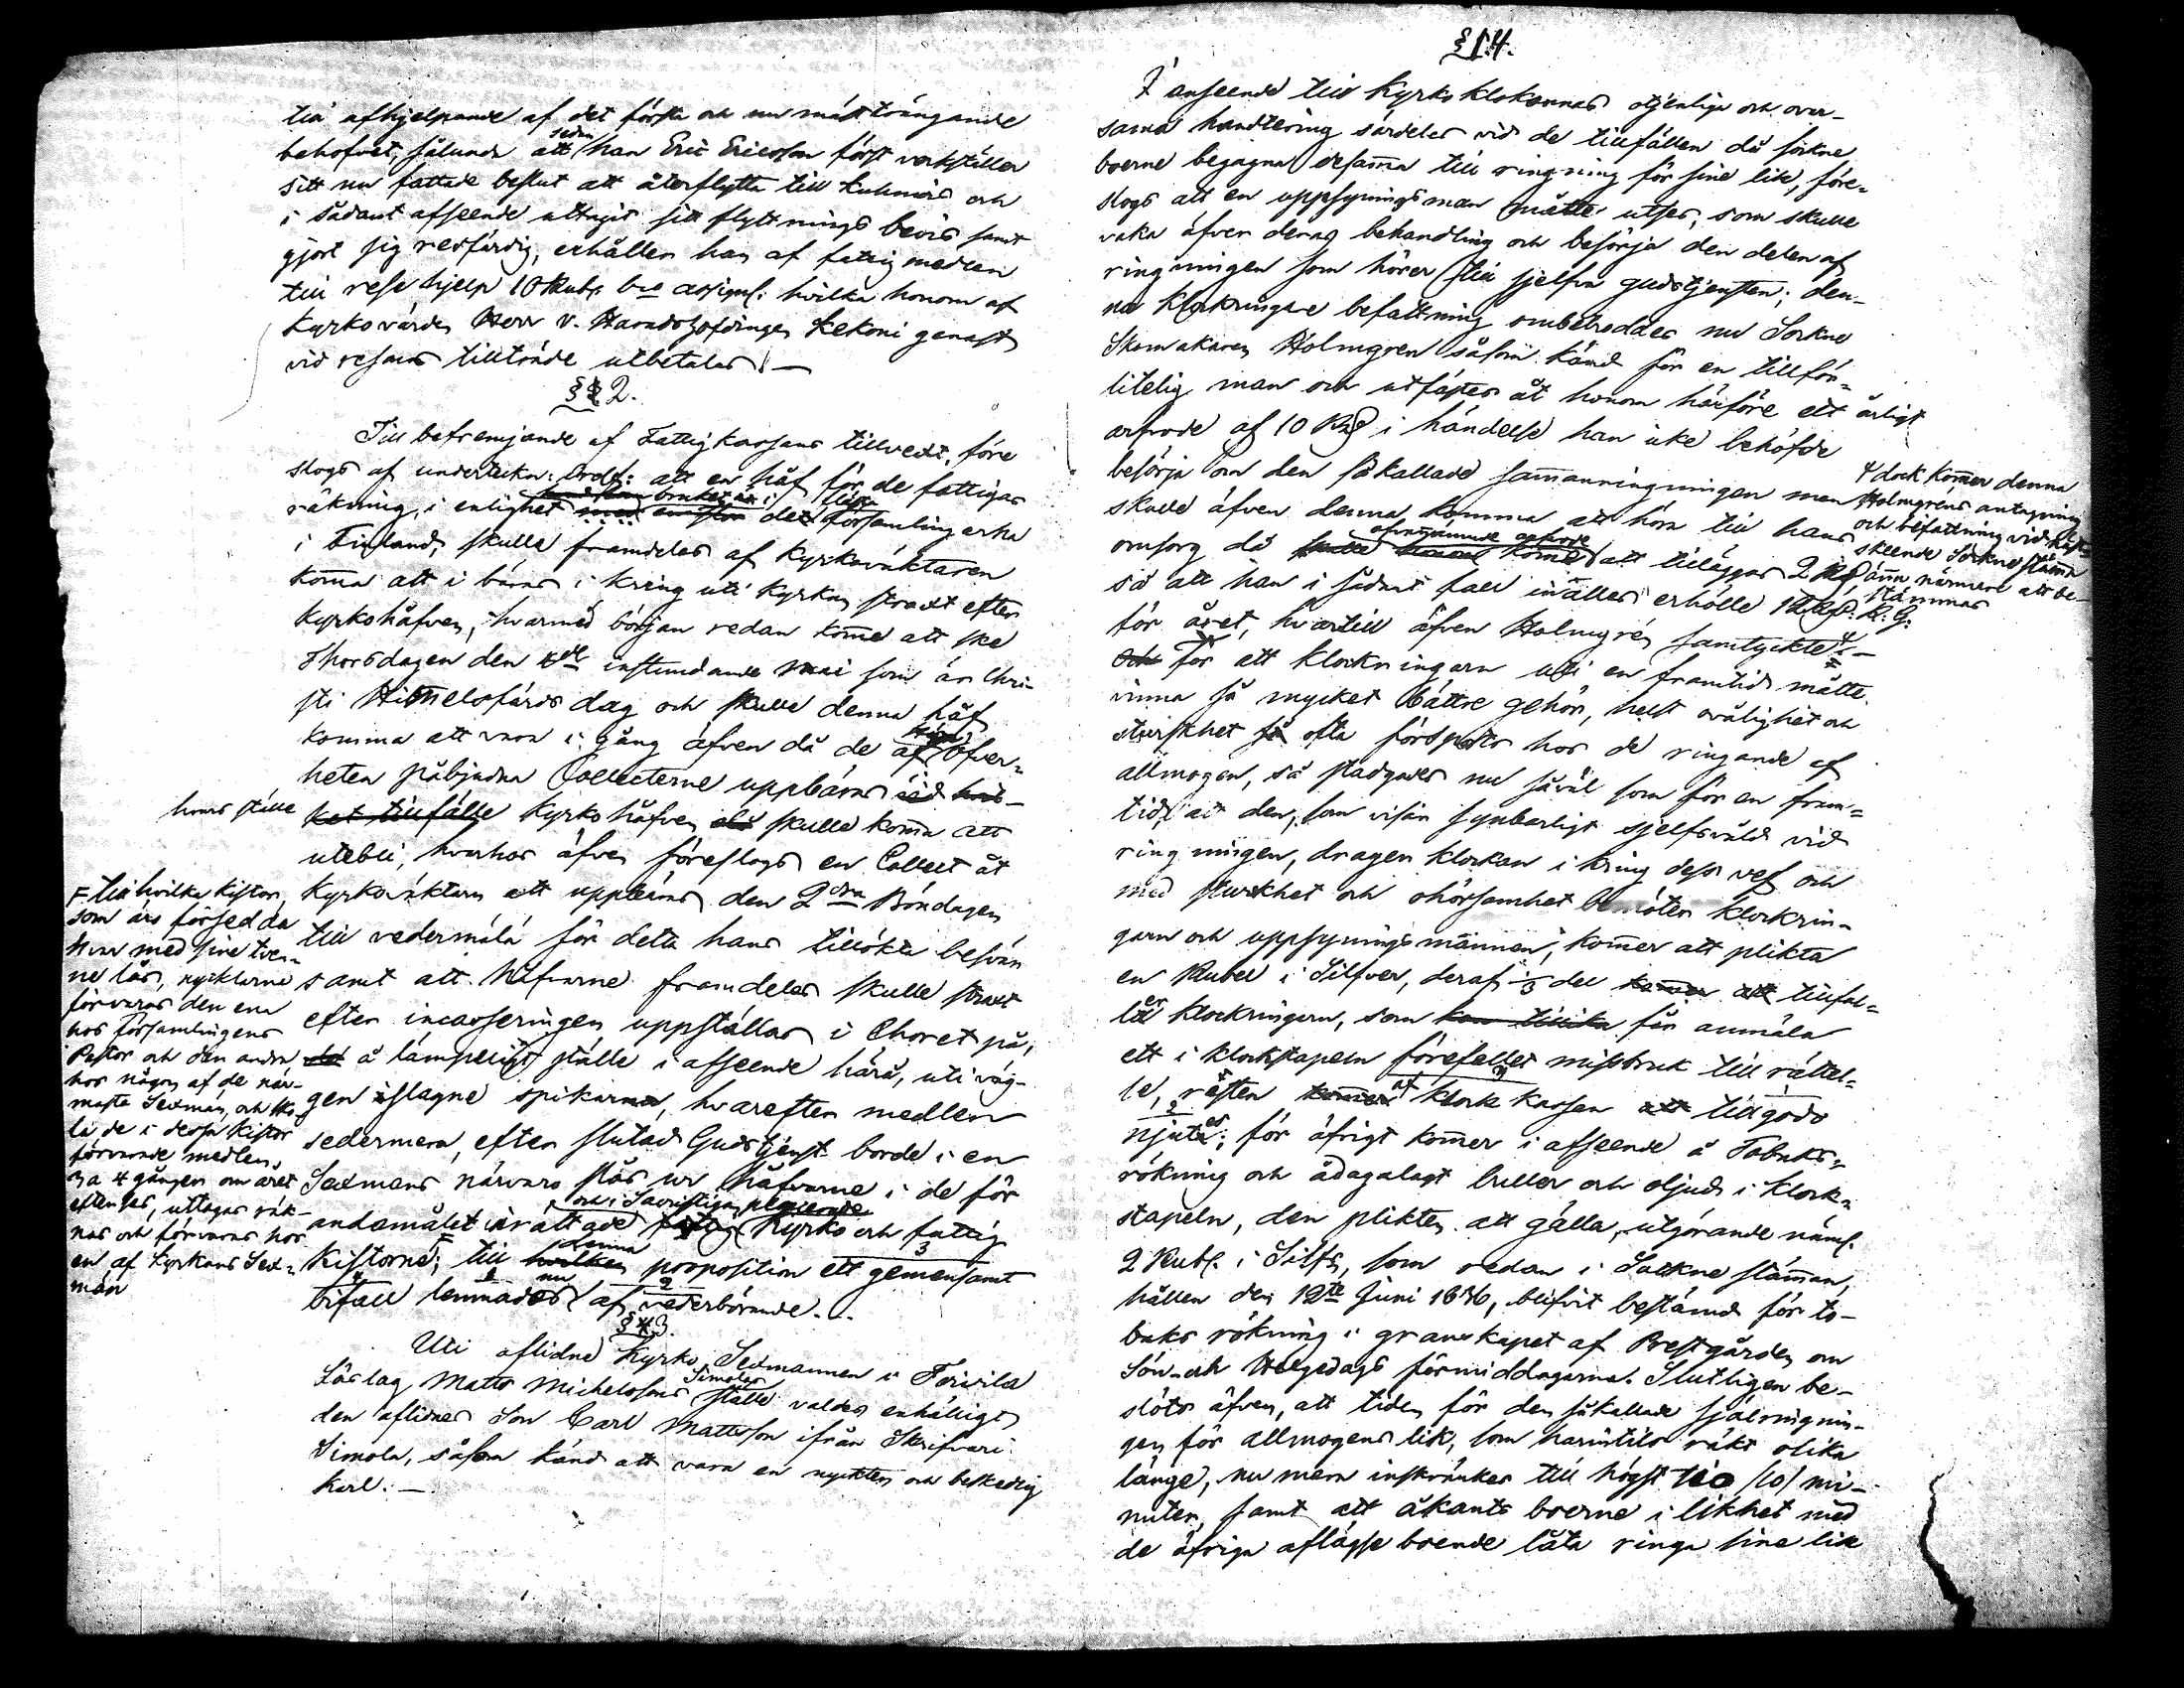 till afhjelpande af det första och nu mäst trängande
behofvet, sålunda att sedan han Eric Ericsson först verkställer
sitt nu fattade beslut att återflytta till Kuhmois och
i sådant afseende uttagit sitt flyttnings bevis samt
gjort sig resfärdig, erhåller han af fattig medlen
till rese hjelp 10 Rub: b:co assign: hvilka honom af
Kyrkovärden Herr v. Häradshöfdingen Kekoni genast
vid resans tillträde utbetalas. —
§ 2.
Till befremjande af Fattigkassans tillvext, före
slogs af underteckn: Ordf: att en håf för de fattigas
räkning, i enlighet med bruket i flera församlingarna
i Finland, skulle framdeles af Kyrkoväktaren
komma att i båras i kring uti Kyrkan straxt efter
Kyrkohåfven, hvarmed början redan komme att ske
Thorsdagen den instundande maj som är Chri-
sti Himmelsfärds dag och skulle denna håf
komma att vara i gång äfven då de af höga Öfver-
heten påbjudna Collecterne uppbäras vid hvil-
ket tillfälle Kyrkohåfven skulle komma att
hvars ställe
utebli, hvarhos äfven föreslogs en Collect åt
Kyrkoväktarn att uppbäras den 2dra Böndagen
till vedermäle för detta hans tillökta besvär
samt att håfvarne framdeles skulle straxt
efter incasseringen uppställas i Choret på,
å lämpeligt ställe i afseende härå, uti väg-
gen islagne spikarna, hvarefter medlen
sedermera, efter slutad Gudstjenst borde i en
Sexmans närvaro slås ur håfvarne i de för
andamålet inrättade och i Sacristigan placerade Kyrko och fattig
Kistorne, till denna proposition ett gemensamt
bifall lemnades nu af vederbörande.
F till hvilka kistor,
som äro försedda
hvar med sine tven-
ne lås, nycklarne
förvaras den ena
hos församlingens
Pastor och den andra
hos någon af de när-
masta Sexmän, och sko-
la de i dessa Kistor
förvarade medlen
4 gången om året
eftenses, uttagas räk-
nas och förvaras hos
en af Kyrkans Sex-
män
§ 3.
Uti aflidne Kyrko Sexmannen i Toivila
Lás lag Matts Michelssons Simolas ställe valdes enhälligt
den aflidnes Son Carl Mattsson ifrån Skrifvari
Simola, såsom känd att vara en nykter och beskedlig
Karl. —
§ 14.
I anseende till Kyrko Klockornas otjenliga och ovar-
sama handtering särdeles vid de tillfällen då sockne
boerne begagna desamma till ringning för sine lik, före-
slogs att en uppsyningsman måtte utses, som skulle
vaka äfver deras behandling och besörja den delen af
ringningen som hörer till sjelfva gudstjensten; den-
na klockringare befattning ombetroddes nu Sockne
Skomakaren Holmgren såsom känd för en tillför-
litelig man och utfästes åt honom härföre ett årligt
arfvode af 10 Rub i händelse han icke behöfde
besörja om den så kallade sammanringningen men
skulle äfven denna komma att höra till hans
omsorg då ofvannämnde arfvode att tilläggas 2 Rub,
så att han i sådant fall inalles erhölle 12 Rub: R. G:
för året, hvartill äfven Holmgrén samtyckte. —
4 dock kommer denna
Holmgréns antagning
och befattning vid näst
skeende Sockne stämma
ännu närmare att be-
stämmas
För att klockringarn uti en framtid måtte
vinna så mycket bättre gehör, helst ovälighet och
sturskhet ofta förspörts hos de ringande af
allmogen, så stadgades nu såväl som för en fram-
tid, att den, som visar synbarligt sjelfsvåld vid
ringningen, drager klockan i kring dess vef och
med sturskhet och ohörsamhet bemöter klockrin-
garn och uppsyningsmännen, kommer att plikta
en Rubel i Silfver, deraf 1/3 del tillfal-
ler klockringarn, som får anmäla
ett i klockstapeln förefallet missbruk till rättel-
se, resten af klock kassan till godo
njutes; för öfrigt kommer i afseende å Tobaks-
rökning och ådagalagt buller och oljud i klock-
stapeln, den plikten att gälla, utgörande näml.
2 Rubl. i Silfr, som redan i Sockne stämman,
hållen den 12te Juni 1836, blifvit bestämd för to-
baks rökning i granskapet af Prestgården om
Sön- och Helgedags förmiddagarna. Slutligen be-
slöts äfven, att tiden för den såkallade själringnin-
gen för allmogens lik, som harintils räkt olika
länge, nu mera inskränkes till högst tio /10/ mi-
nuter, samt att åkants boerne i likhet med
de öfriga aflägse boende låta ringa sine lik